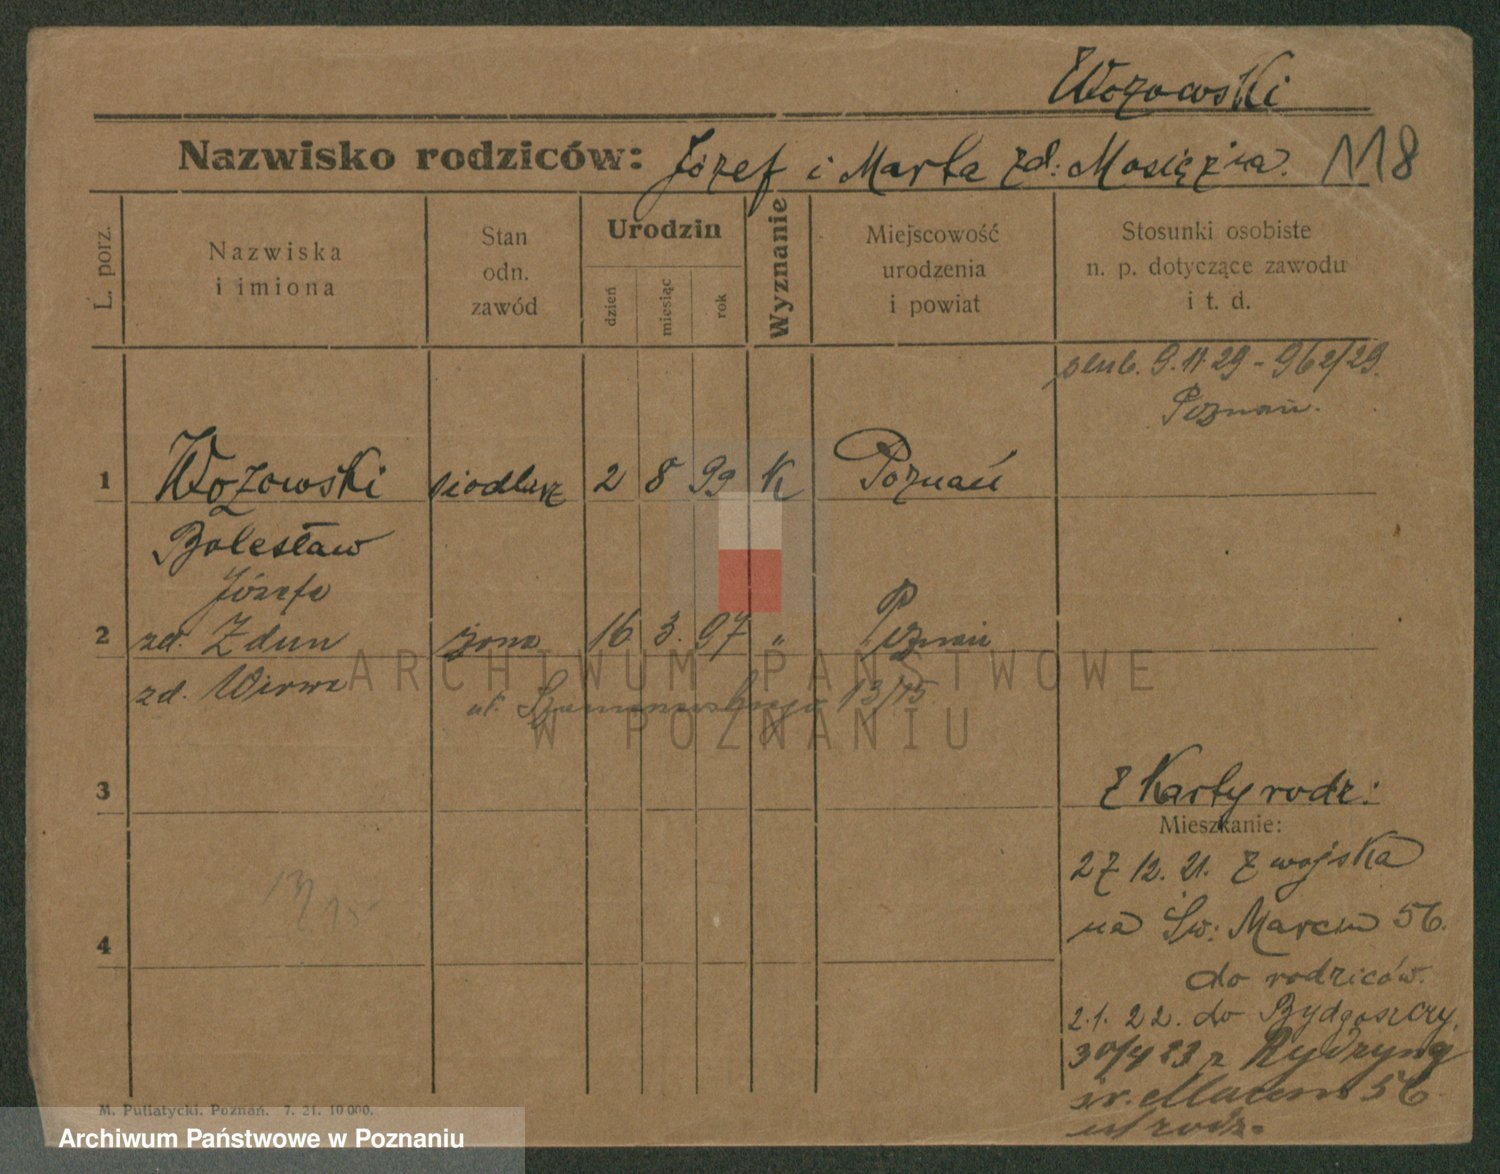 Wozowski
Nazwisko rodziców: Józef i Marta zd: Mosiężna. 118
L. porz.
Nazwiska
i imiona
Stan
odn.
zawód
Urodzin
dzień
miesiąc
rok
Wyznanie
Miejscowość
urodzenia
i powiat
Stosunki osobiste
n. p. dotyczące zawodu
i t. d.
ślub. 9.11 29 - 962/29.
Poznań.
1 Wozowski siodlarz 2 8 99 K Poznań
Bolesław
Józefa
2 zd. Zdun żona 16 3. 97 „ Poznań
zd. Wirwa
ul. 13/15
3
z Karty rodz:
Mieszkanie:
27 12. 21. z wojska
na Św: Marcin 56.
4
do rodziców.
2.1. 22. do Bydgoszczy.
30/4 23 z
św. Marcin 56
u rodz.
M. Putiatycki. Poznań. 7. 21. 10 000.
ARCHIWUM PAŃSTWOWE
W POZNANIU
Archiwum Państwowe w Poznaniu